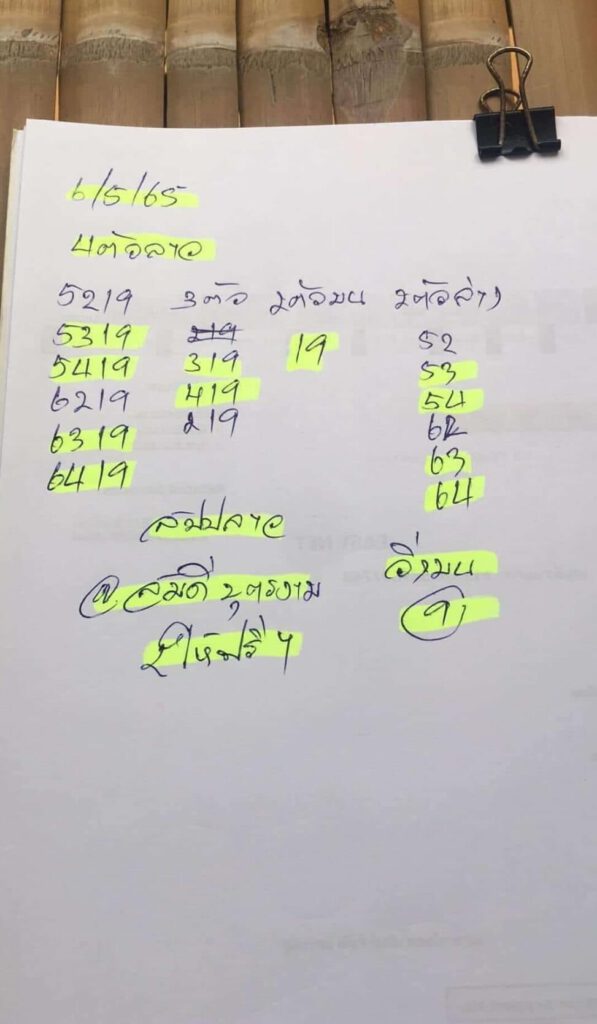 6/5/65
4ตัวลาว
5219 3ตัว 2ตัวบน 2ตัวล่าง
5319 219 19 52
5419 319 53
6219 419 54
6319 219 62
6419 63
64
ลาว
วิ่งบน
@สมดี บุตรงาม
9
ให้ฟรีๆ